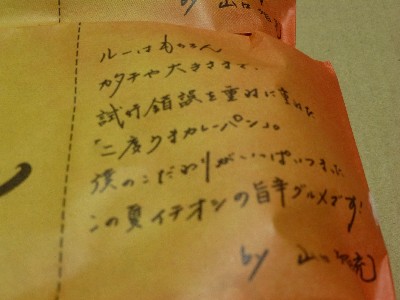 by 山口
ルーはもちろん
カタチや大きさまで、
試行錯誤を重ねに重ねた
「二度うまカレーパン」。
僕のこだわりがいっぱいつまった
この夏イチオシの旨辛グルメです!
by 山口